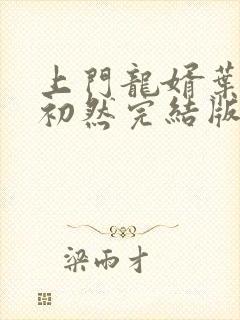 上門龍婿葉
初然完結版
梁雨才